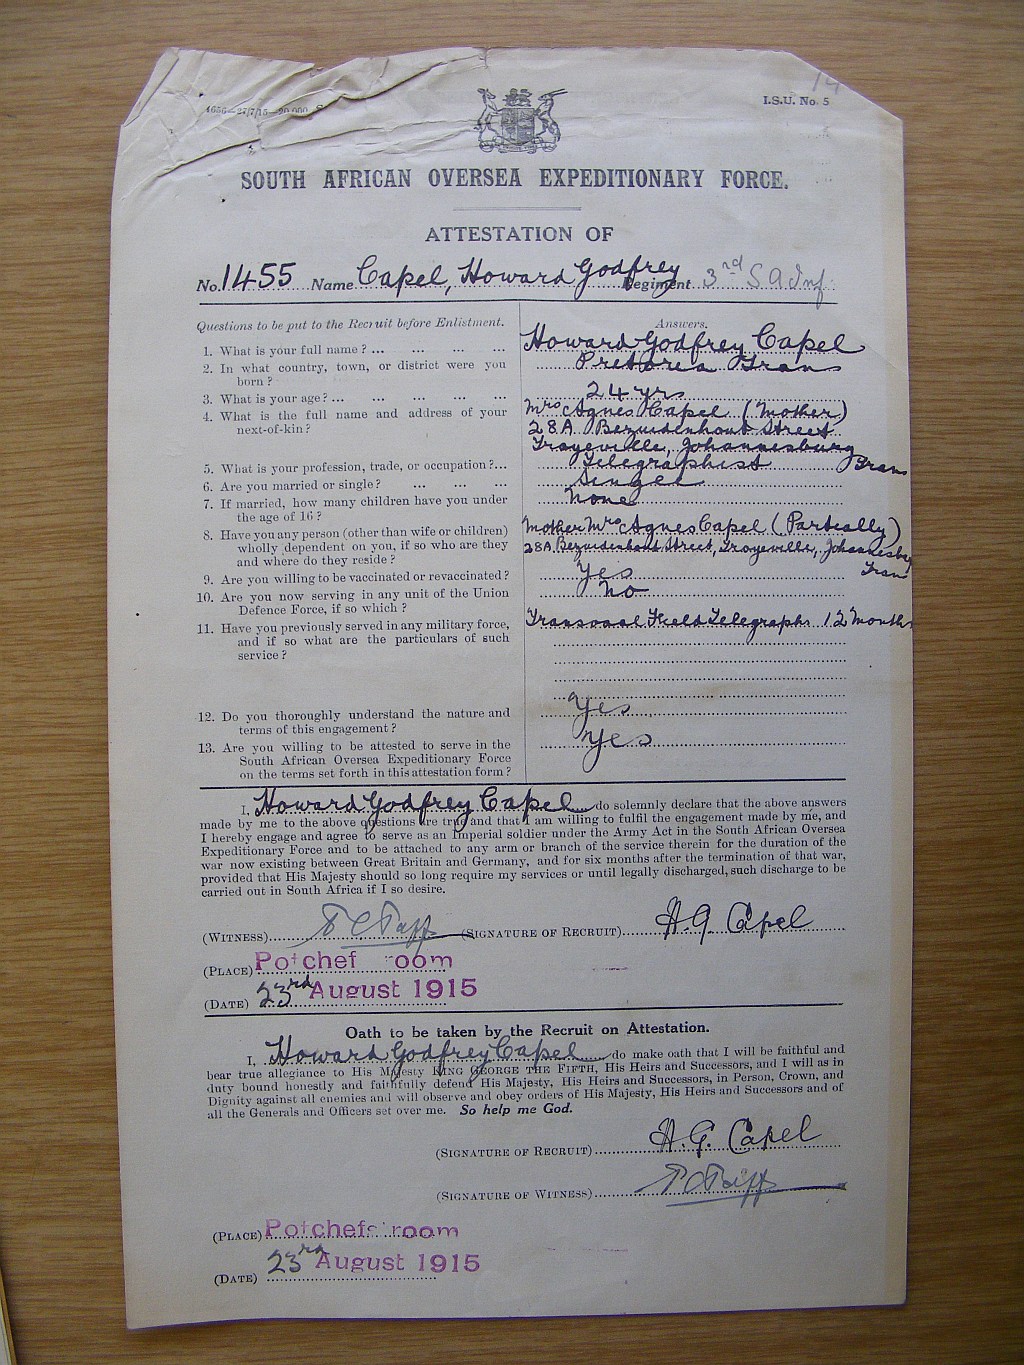 1656—27/7/15—20,000
I.S.U. No. 5
SOUTH AFRICAN OVERSEA EXPEDITIONARY FORCE.
ATTESTATION OF
No. 1455 Name Capel, Howard Godfrey Regiment 3rd S A Inf
Questions to be put to the Recruit before Enlistment.
Answers.
1. What is your full name ? ... ... ... ...
Howard Godfrey Capel
2. In what country, town, or district were you
born ?
Pretoria Tran
3. What is your age? ... ... ... ...
24 yrs
4. What is the full name and address of your
next-of-kin ?
Mrs Agnes Capel (Mother)
28A Bezuidenhout Street
Troyeville, Johannesburg
Tran
5. What is your profession, trade, or occupation ?...
Telegraphist
6. Are you married or single? ... ... ...
Single
7. If married, how many children have you under
the age of 16 ?
None
8. Have you any person (other than wife or children)
wholly dependent on you, if so who are they
and where do they reside ?
Mother Mrs Agnes Capel (Partially)
28A Bezuidenhout Street, Troyeville, Johannesb
Tran
9. Are you willing to be vaccinated or revaccinated ?
Yes
10. Are you now serving in any unit of the Union
Defence Force, if so which ?
No
11. Have you previously served in any military force,
and if so what are the particulars of such
service ?
Transvaal Field Telegraphs 12 Months
12. Do you thoroughly understand the nature and
terms of this engagement ?
Yes
13. Are you willing to be attested to serve in the
South African Oversea Expeditionary Force
on the terms set forth in this attestation form ?
Yes
I, Howard Godfrey Capel do solemnly declare that the above answers
made by me to the above questions are true and that I am willing to fulfil the engagement made by me, and
I hereby engage and agree to serve as an Imperial soldier under the Army Act in the South African Oversea
Expeditionary Force and to be attached to any arm or branch of the service therein for the duration of the
war now existing between Great Britain and Germany, and for six months after the termination of that war,
provided that His Majesty should so long require my services or until legally discharged, such discharge to be
carried out in South Africa if I so desire.
(WITNESS) (SIGNATURE OF RECRUIT) H. G. Capel
(PLACE) Potchef room
(DATE) 23rd August 1915
Oath to be taken by the Recruit on Attestation.
I, Howard Godfrey Capel do make oath that I will be faithful and
bear true allegiance to His Majesty KING GEORGE THE FIFTH, His Heirs and Successors, and I will as in
duty bound honestly and faithfully defend His Majesty, His Heirs and Successors, in Person, Crown, and
Dignity against all enemies and will observe and obey orders of His Majesty, His Heirs and Successors and of
all the Generals and Officers set over me. So help me God.
(SIGNATURE OF RECRUIT) H. G. Capel
(SIGNATURE OF WITNESS)
(PLACE) Potchefstroom
(DATE) 23rd August 1915